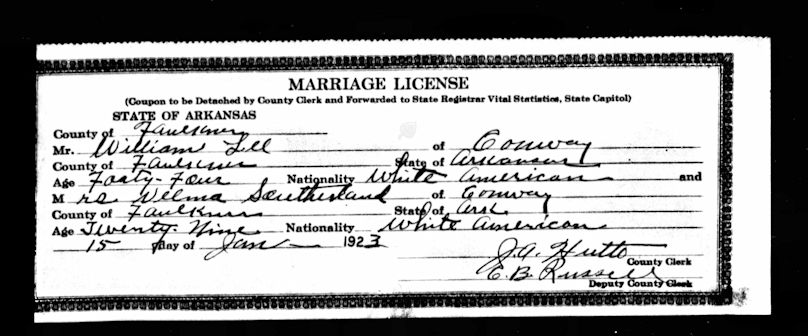 MARRIAGE LICENSE
(Coupon to be Detached by County Clerk and Forwarded to State Registrar Vital Statistics, State Capitol)
STATE OF ARKANSAS
County of Faulkner
Mr. William Lee of Conway
County of Faulkner State of Arkansas
Age Forty-Four Nationality White American and
M rs Velma Southerland of Conway
County of Faulkner State of Ark
Age Twenty Nine Nationality White American
15 day of Jan 1923
J.A. Hutto
County Clerk
E.B. Russell
Deputy County Clerk